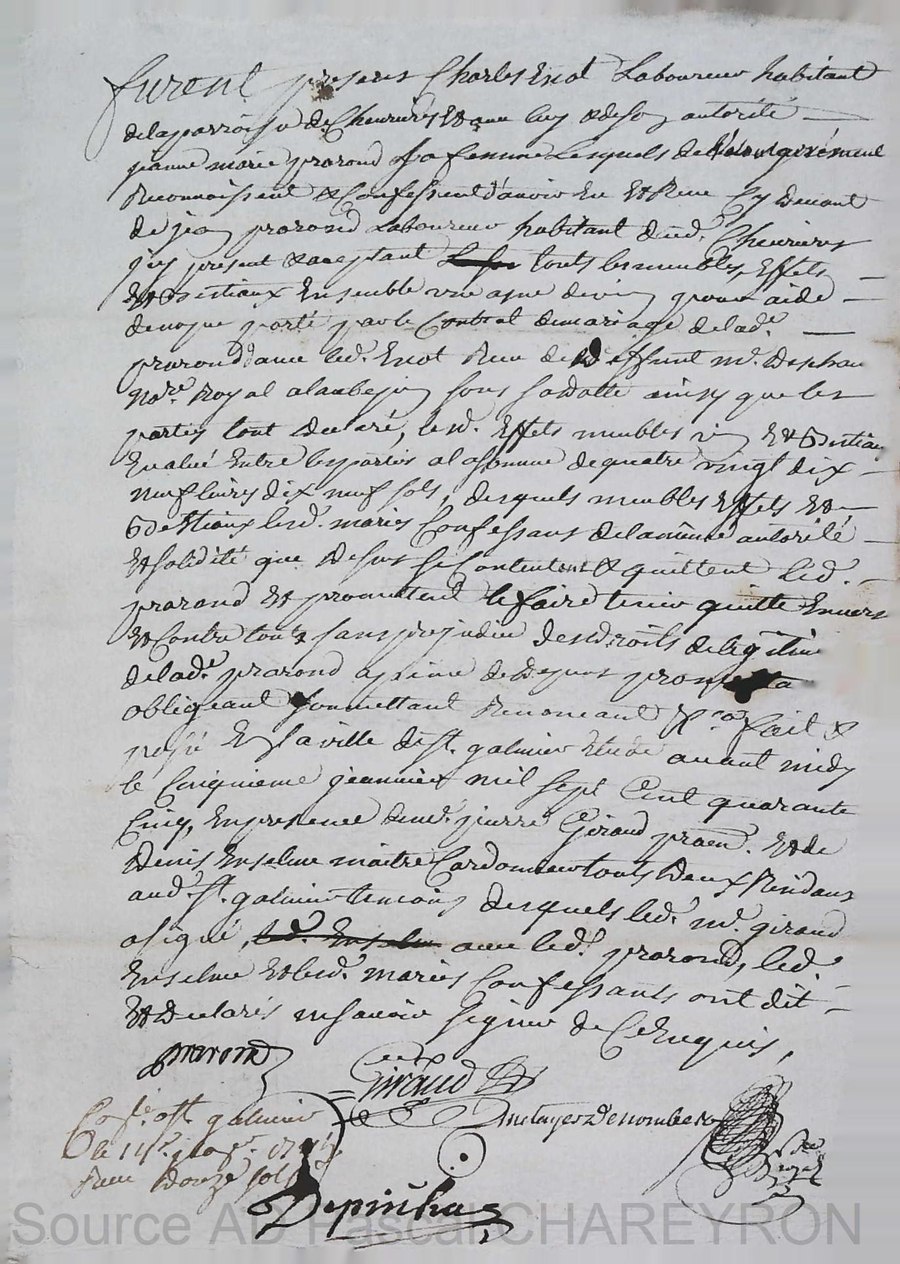 furent presens Charles Enot Laboureur habitant
delaparroisse de Chevrieres & avec luy & de son autorité
jeanne marie prorond sa femme Lesquels de
Reconnaissent & Confessent d'avoir Eu & Receu Cy devant
de jean prorond Laboureur habitant dud. Chevrieres
jcy present & acceptant touts les meubles, Effets
& Bestiaux Ensemble une de vin pour aide
de nospe porté par le Contrat de mariage de lad.e
prorond avec led. Enot Receu de deffunt m.e
No.re Royal sous sa dotte ainsy que les
parties l'ont declaré, lesd. Effets meubles vin & Bestiau
Evalué Entre les parties a la somme de quatre vingt dix
neuf livres dix neuf sols, desquels meubles Effets &
Bestiaux lesd. mariés Confessans de la même autorité
& solidité que dessus se Contentent & quittent led.
prorond & promettent le faire tenir quitte Envers
& Contre tous sans prejudice des droits de legitime
de lad.e prorond a peine de Depens
obligeant soumettant Renonceant &.a fait &
passé En la ville de S.t galmier Etude avant midy
le Cinquieme jeanvier mil sept Cent quarante
Cinq, En presence de me. pierre Giraud praen. & de
Denis Enselme maitre Cordonnier touts deux Residans
aud. S.t galmier temoins desquels led. m.e giraud
a signé, led. Enselme avec led. prorond, led.
Enselme & lesd. mariés Confessants ont dit
& Declarés ne savoir signer de Ce Enquis,
prorond
Giraud
Con.le a S.t galmier
le 14.e
Receu Douze sols
Depinhac
Source AD Pascal CHAREYRON